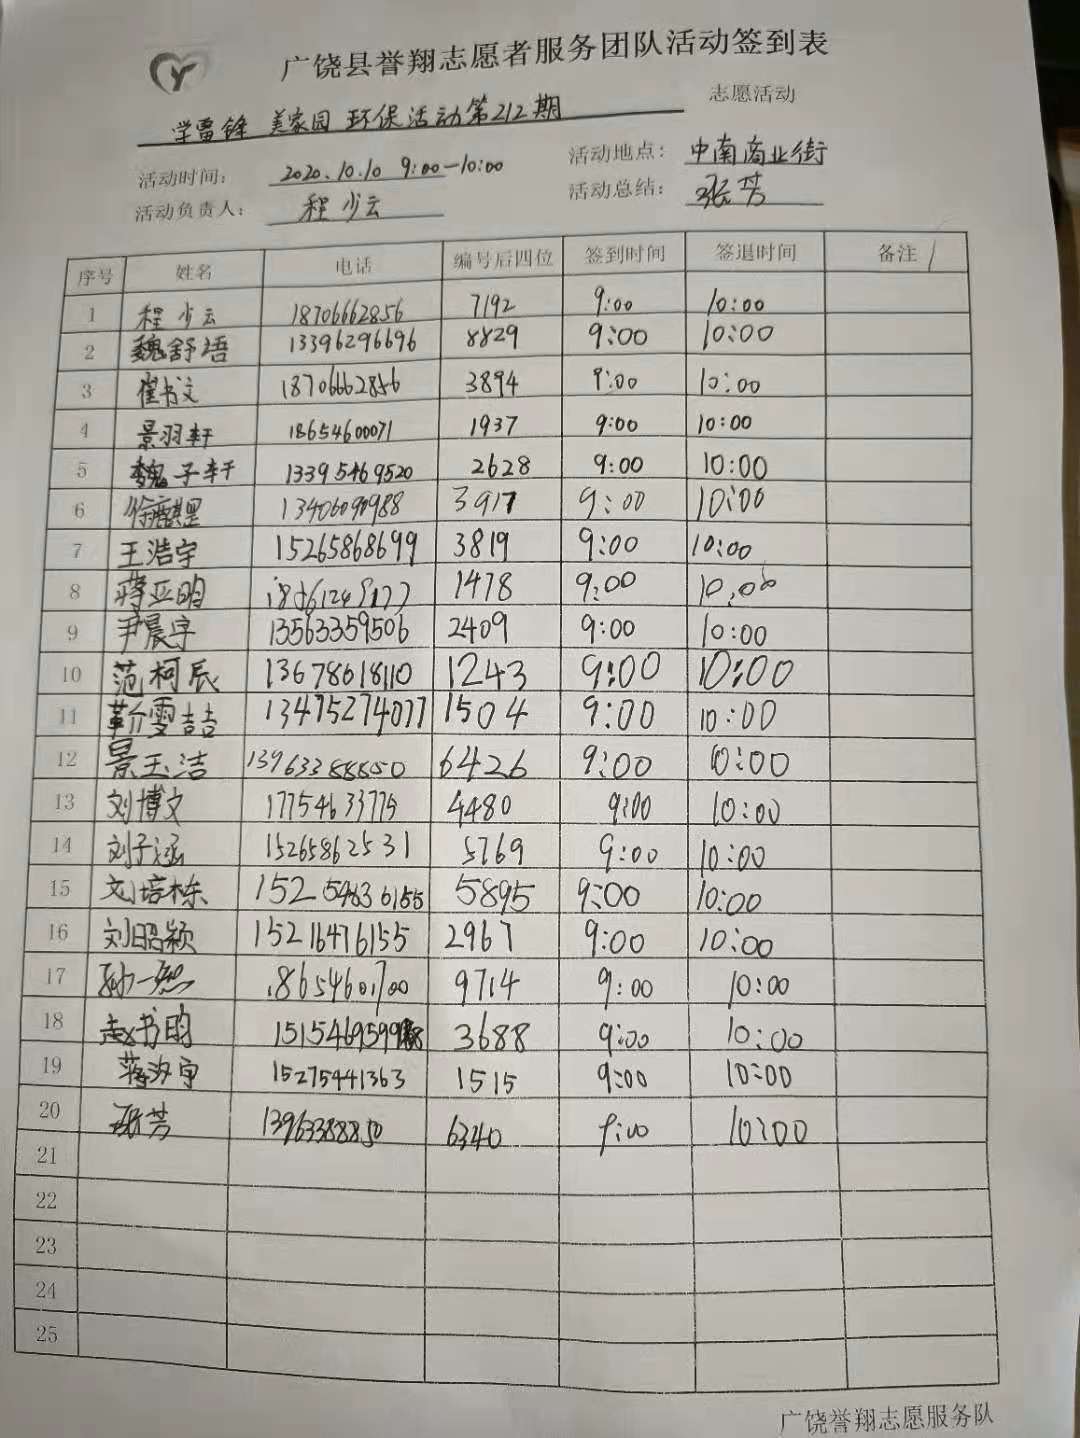 广饶县誉翔志愿者服务团队活动签到表
学雷锋 美家园 环保活动第212期 志愿活动
活动时间： 2020.10.10 9:00—10:00 活动地点： 中南商业街
活动负责人： 程少云 活动总结： 张芳
序号 姓名 电话 编号后四位 签到时间 签退时间 备注
1 程少云 18706662856 7192 9:00 10:00
2 魏舒语 13396296696 8829 9:00 10:00
3 翟书文 18706662856 3894 9:00 10:00
4 景羽轩 18654600071 1937 9:00 10:00
5 魏子轩 13395469520 2628 9:00 10:00
6 13406090988 3917 9:00 10:00
7 王浩宇 15265868699 3819 9:00 10:00
8 蒋亚明 1478 9:00 10:00
9 尹晨宇 13563359506 2409 9:00 10:00
10 范柯辰 13678618110 1243 9:00 10:00
11 靳雯喆 13475274077 1504 9:00 10:00
12 景玉洁 13963388850 6426 9:00 10:00
13 刘博文 17754633775 4480 9:00 10:00
14 刘子涵 15265862531 5769 9:00 10:00
15 刘培栋 15254636155 5895 9:00 10:00
16 刘昭颖 15216476155 2967 9:00 10:00
17 孙一然 18654601700 9714 9:00 10:00
18 赵书昀 3688 9:00 10:00
19 蒋汐宇 15275441363 1515 9:00 10:00
20 张芳 13963388850 6340 9:00 10:00
21
22
23
24
25
广饶誉翔志愿服务队